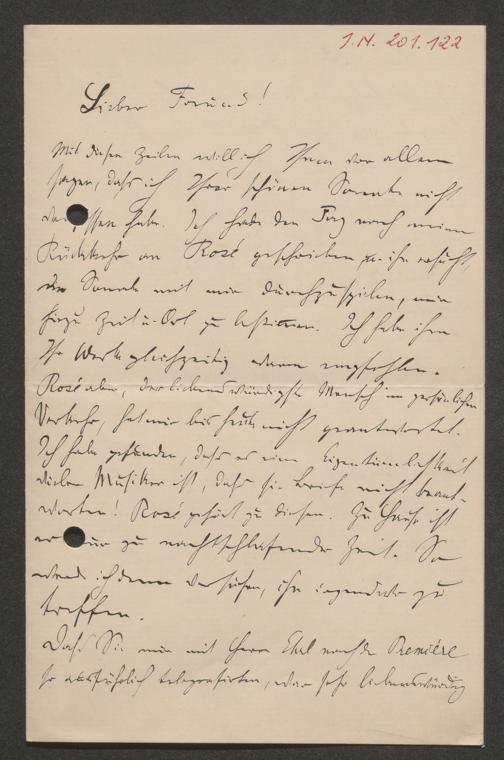 I.N. 201.122
Lieber Freund!
Mit diesen Zeilen will ich Ihnen vor allem
sagen, daß ich Ihrer schönen Sonate nicht
vergessen habe. Ich habe den Tag nach meiner
Rückkehr an Rosé geschrieben u. ihn ersucht,
die Sonate mit mir durchzuspielen, mir
hiezu Zeit u. Ort zu bestimmen. Ich habe ihm
Ihr Werk gleichzeitig warm empfohlen.
Rosé aber, der liebenswürdigste Mensch im persönlichen
Verkehr, hat mir bis heute nicht geantwortet.
Ich habe gefunden, daß es eine Eigentümlichkeit
vieler Musiker ist, daß sie Briefe nicht beant-
worten! Rosé gehört zu diesen. Zu Hause ist
er nur zu nachtschlafender Zeit. So
werde ich denn versuchen, ihn irgendwo zu
treffen.
Daß Sie mir mit Herrn Ehrl nach der Première
so ausführlich telegrafirten, war sehr liebenswürdig